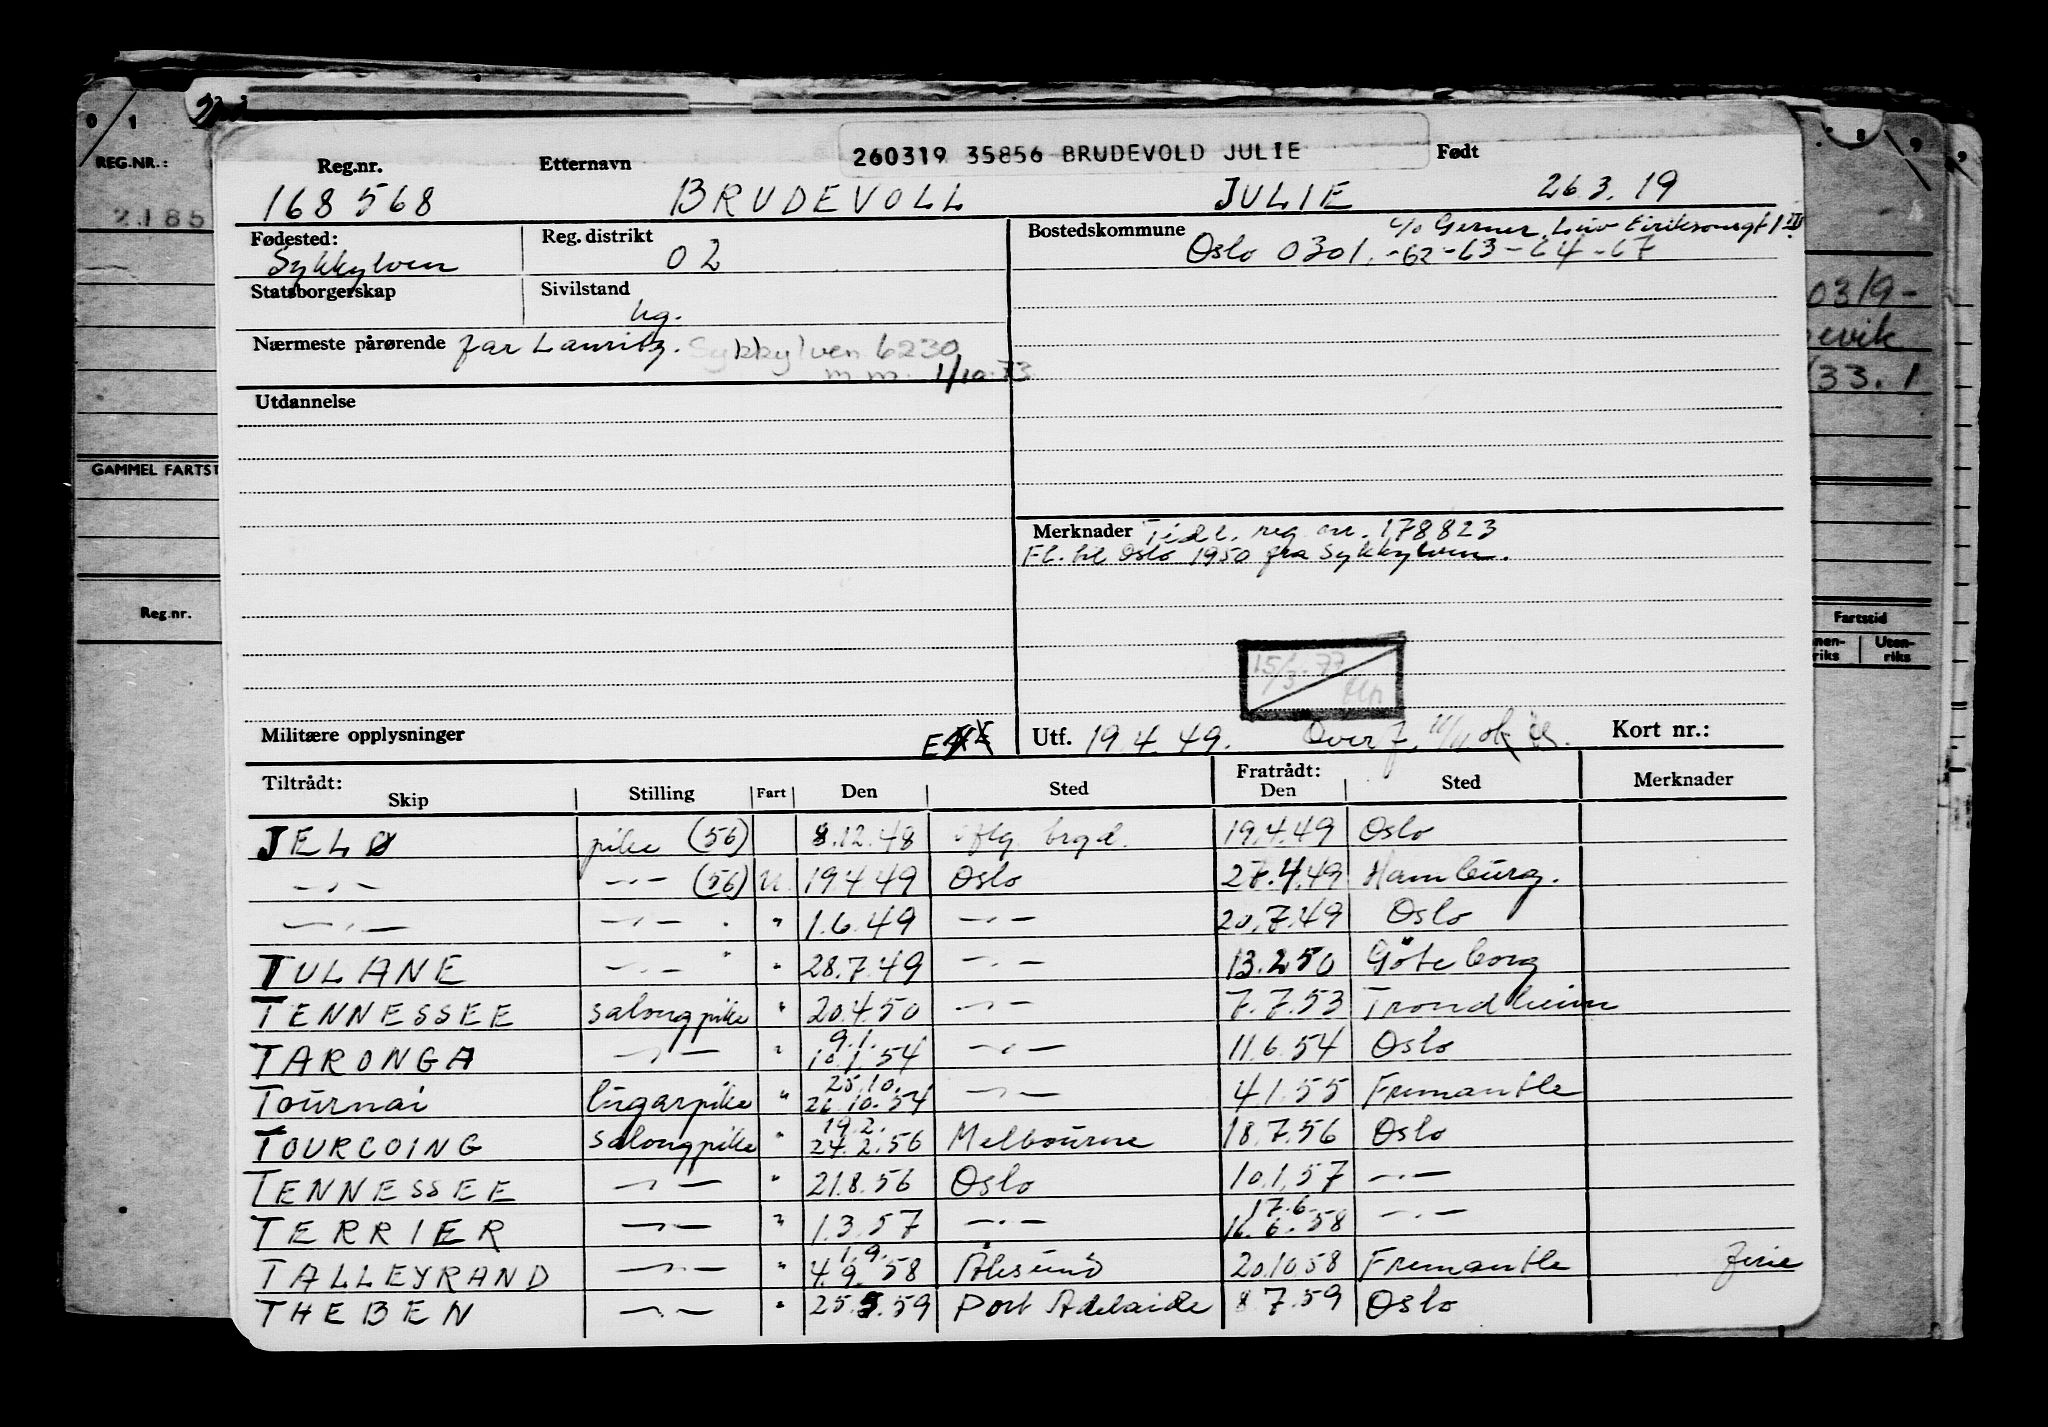 0 1
REG.NR.:
2185
GAMMEL FARTST
Reg.nr.
260319 35856 BRUDEVOLD JULIE
Reg.nr. Etternavn Født
168568 BRUDEVOLL JULIE 26.3.19
Fødested: Sykkylven
Reg. distrikt 02
Bostedskommune c/o Gerner, Leiv Eirikssonsgt 1 III
Oslo 0301. -62-63-64-67
Statsborgerskap
Sivilstand ug.
Nærmeste pårørende far Lauritz. Sykkylven 6230
m.m. 1/10-73
Utdannelse
Merknader Tidl. reg. nr. 178823
Fl. til Oslo 1950 fra Sykkylven.
15/3-77
Militære opplysninger
Utf. 19.4.49. Overf. 11/11 ok
Kort nr.:
Tiltrådt: Fratrådt:
Skip Stilling Fart Den Sted Den Sted Merknader
JELØ pike (56) 8.12.48 19.4.49 Oslo
—"— —"— (56) U. 19.4.49 Oslo 27.4.49 Hamburg.
—"— —"— " 1.6.49 —"— 20.7.49 Oslo
TULANE —"— " " 28.7.49 —"— 13.2.50 Göteborg
TENNESSEE salongpike " 20.4.50 —"— 7.7.53 Trondheim
TARONGA —"— " 9.1. 10.1.54 —"— 11.6.54 Oslo
Tournai lugarpike " 25.10. 26.10.54 —"— 4.1.55 Fremantle
TOURCOING salongpike " 19.2. 24.2.56 Melbourne 18.7.56 Oslo
TENNESSEE —"— " 21.8.56 Oslo 10.1.57 —"—
TERRIER —"— " 1.3.57 —"— 17.6. 16.6.58 —"—
TALLEYRAND —"— " 1.9. 4.9.58 Ålesund 20.10.58 Fremantle ferie
THEBEN —"— " 25.5.59 Port Adelaide 8.7.59 Oslo
0319-
evik
/33.1
Fartstid
Uten-
riks